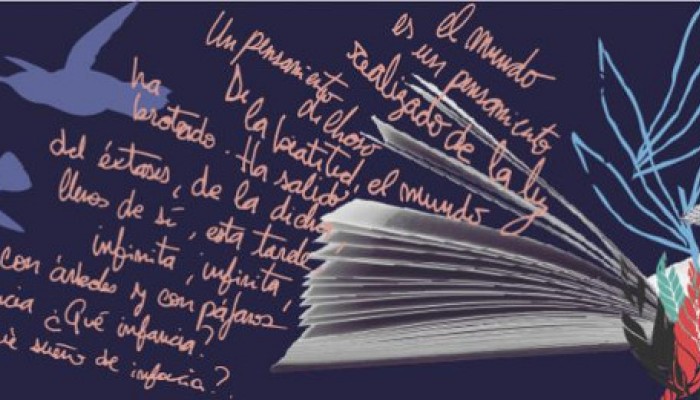 el mundo
es un pensamiento
realizado de la luz
Un pensamiento
dichoso
De la beatitud, el mundo
ha
brotado. Ha salido
del éxtasis, de la dicha,
llenos de sí, esta tarde
infinita, infinita,
con árboles y con pájaros
ncia ¿Qué infancia?
é sueño de infancia?